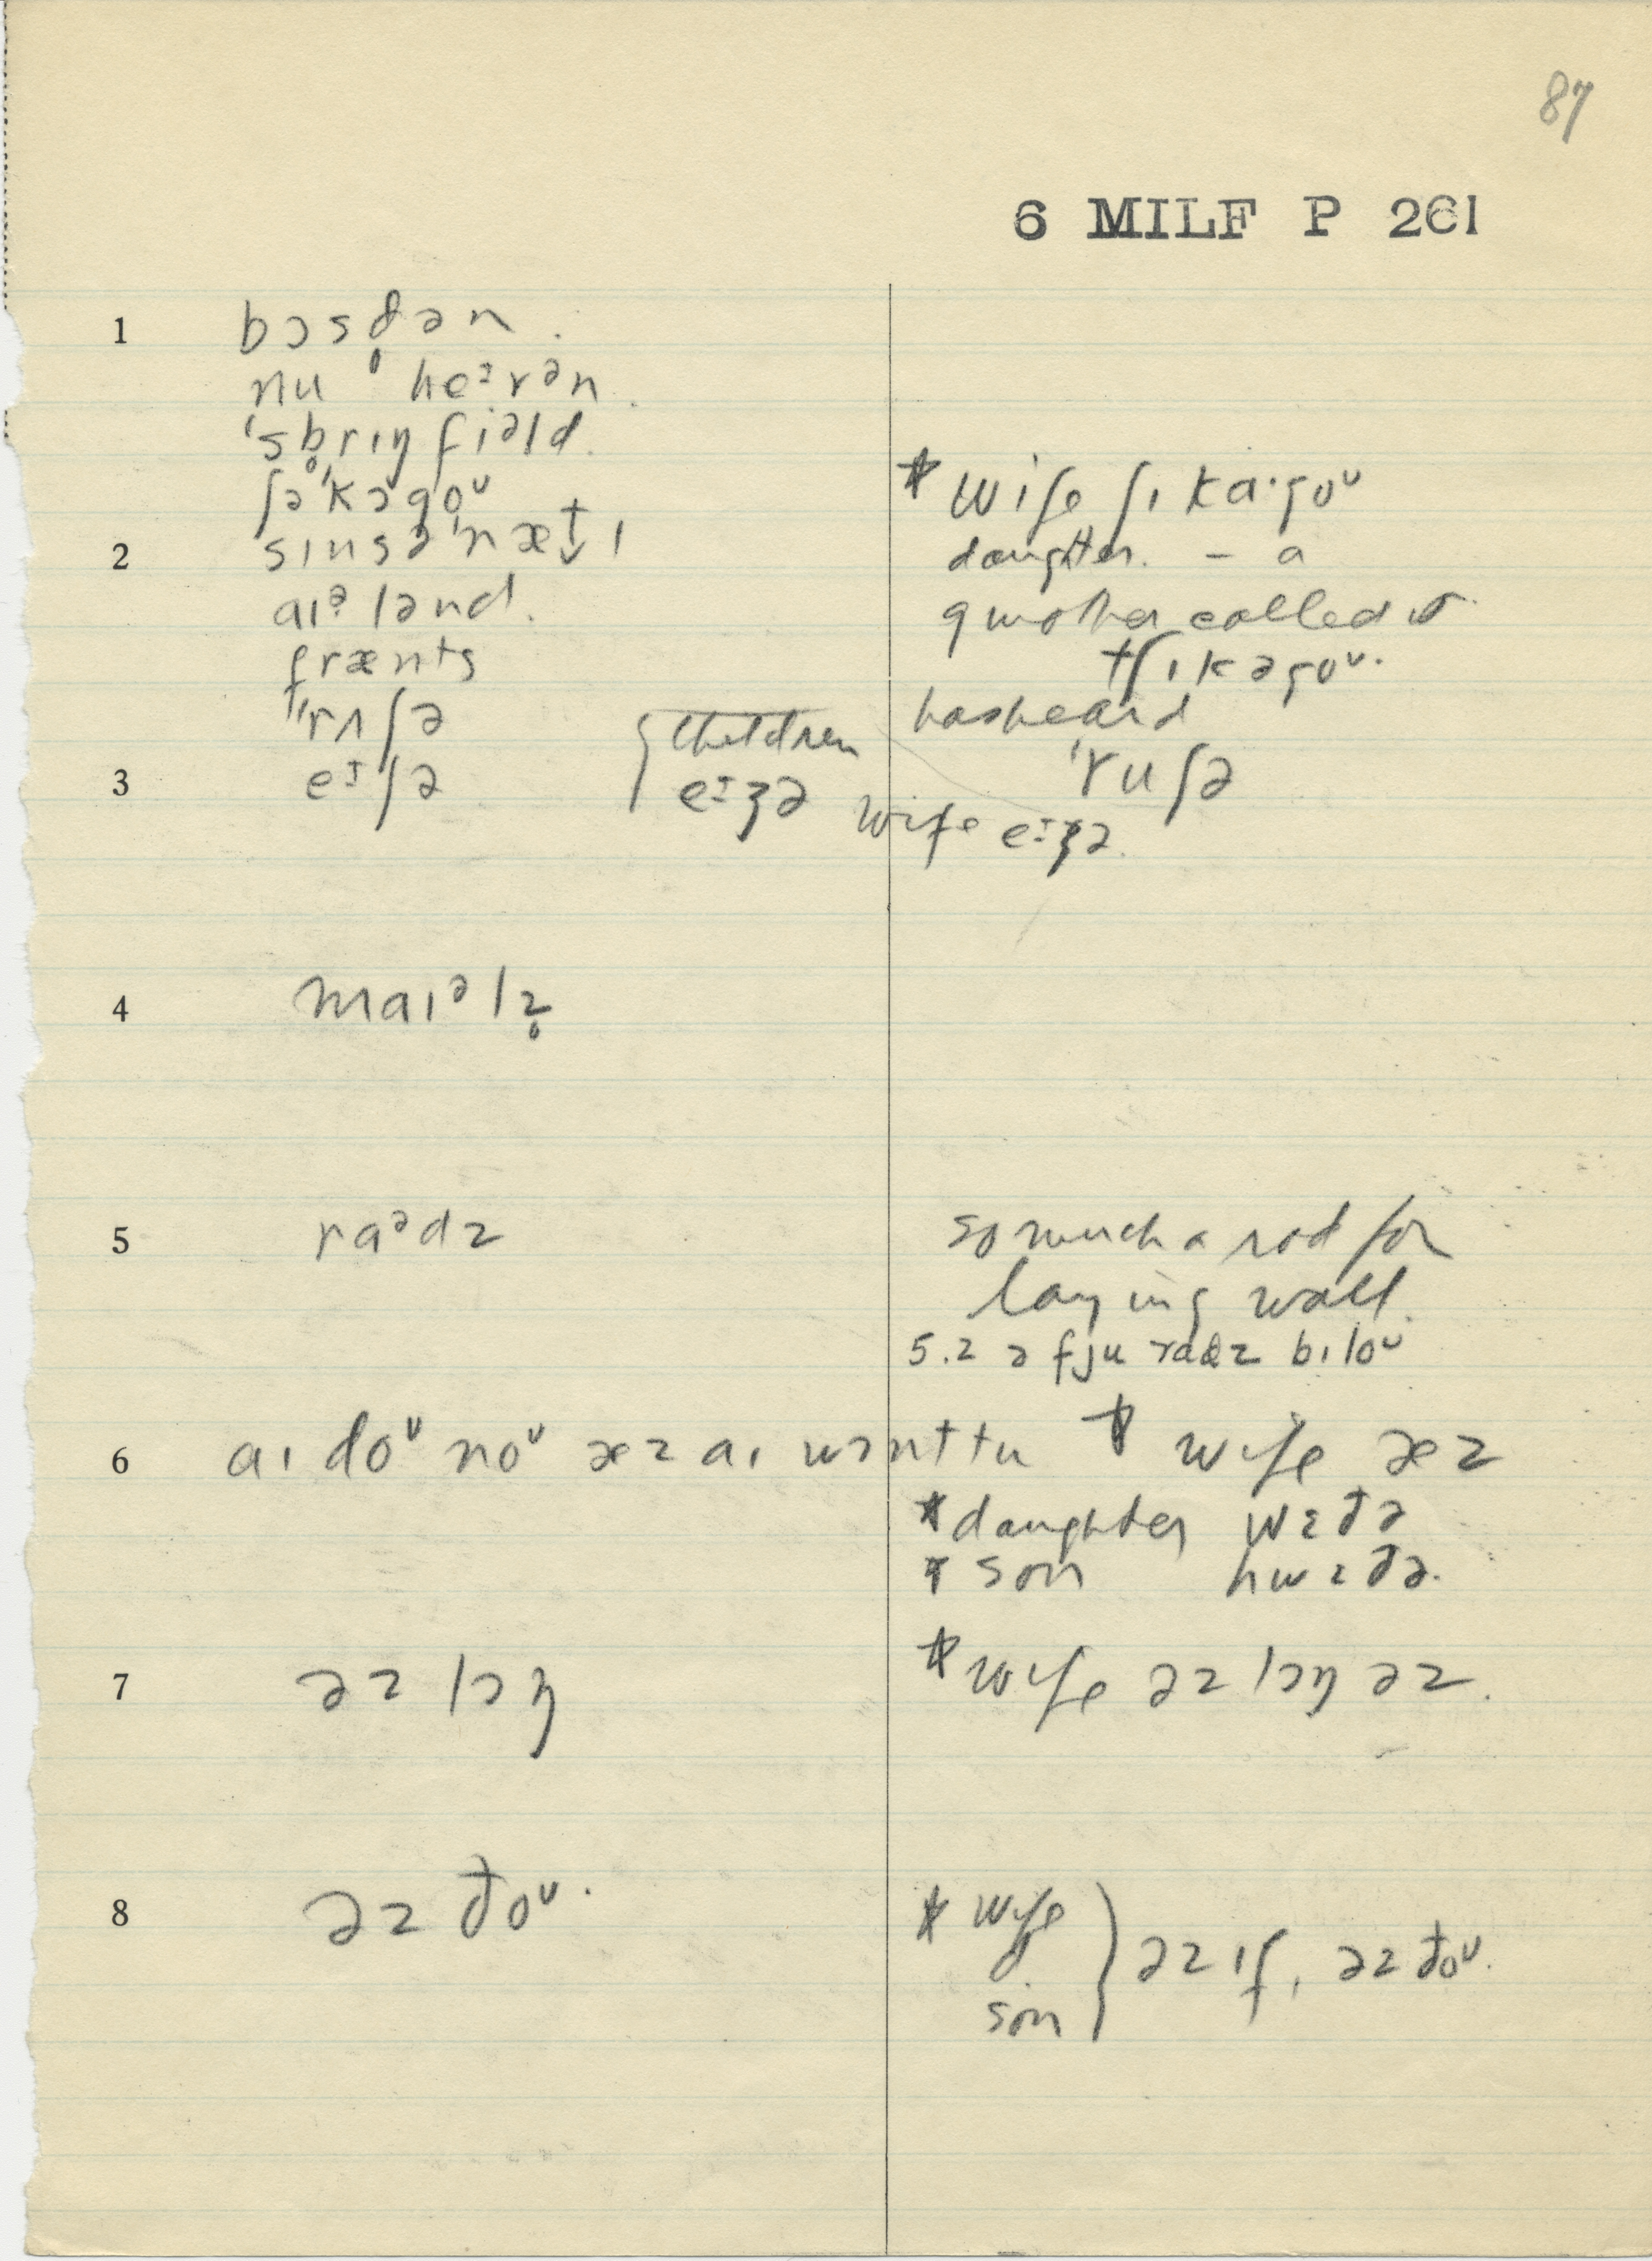 87
6 MILF P 261
1 bɔsd̥ən.
nu heᵊrən.
ˈsb̥rɪŋfiəld.
ʃəˈkɔgoᵘ
* wife ʃɪkɑ·goᵘ
2 sɪnsəˈnæt̬ɪ
daughter. – a
aɪᵊlənd.
gmother called it
frænts
tʃɪkəgoᵘ.
ˈrʌʃə
has heard
ˈruʃə
3 eɪʃə
{ children eɪʒə
wife eɪʒə.
4 maɪᵊlz̥
5 raᵊdz
so much a rod for
laying wall.
5.2 ə fju radz bɪloᵘ
6 aɪ doᵘ noᵘ æz aɪ wɔnt tu
* wife æz
* daughter wɛðə
* son hwɛðə.
7 əz lɔŋ
* wife əz lɔŋ əz.
8 əz ðoᵘ.
* wife
son } əz ɪf, əz ðoᵘ.